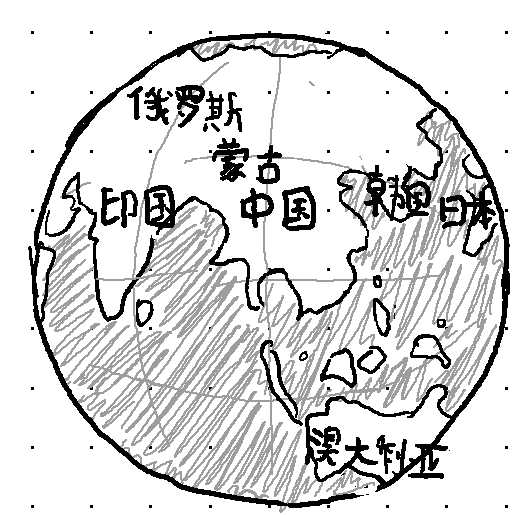 俄罗斯
蒙古
印国
中国
朝鲜
日本
澳大利亚